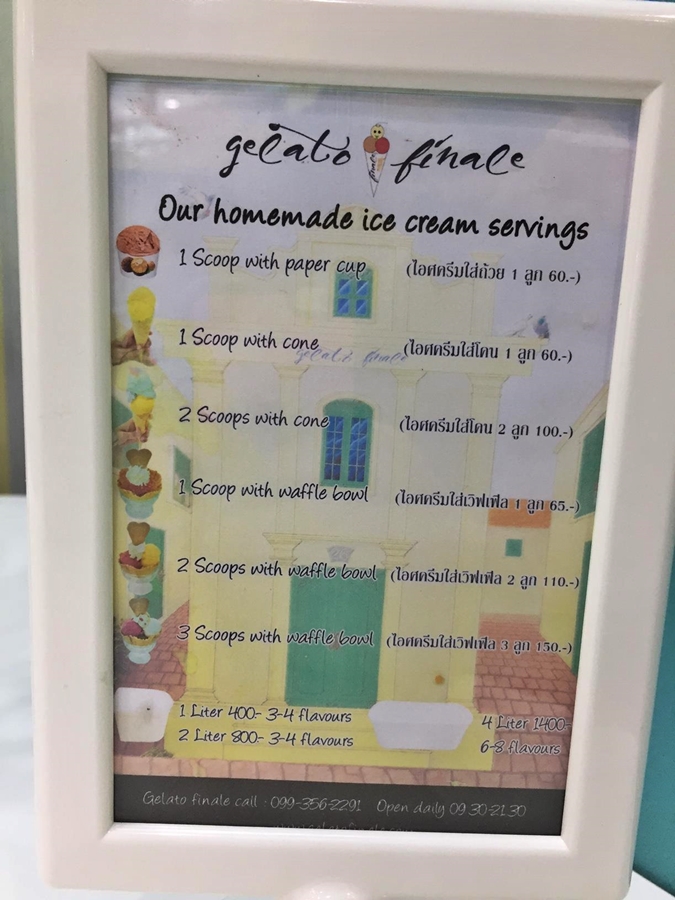 gelato finale
Our homemade ice cream servings
1 Scoop with paper cup (ไอศครีมใส่ถ้วย 1 ลูก 60.-)
1 Scoop with cone (ไอศครีมใส่โคน 1 ลูก 60.-)
gelato finale
2 Scoops with cone (ไอศครีมใส่โคน 2 ลูก 100.-)
1 Scoop with waffle bowl (ไอศครีมใส่เวิฟเฟิล 1 ลูก 65.-)
2 Scoops with waffle bowl (ไอศครีมใส่เวิฟเฟิล 2 ลูก 110.-)
3 Scoops with waffle bowl (ไอศครีมใส่เวิฟเฟิล 3 ลูก 150.-)
1 Liter 400.- 3-4 flavours
2 Liter 800.- 3-4 flavours
4 Liter 1400.-
6-8 flavours
Gelato finale call : 099-356-2291 Open daily 09.30-21.30